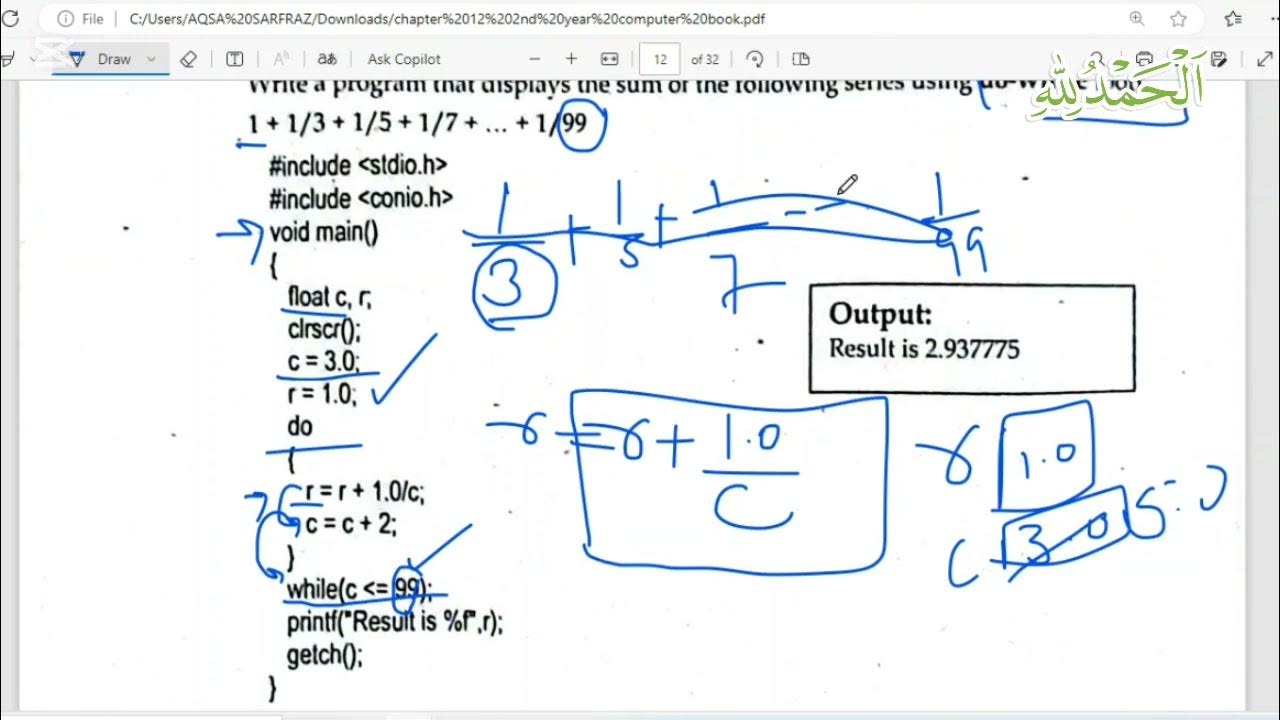 File C:/Users/AQSA%20SARFRAZ/Downloads/chapter%2012%202nd%20year%20computer%20book.pdf
Draw aあ Ask Copilot 12 of 32
اَلْحَمْدُلِلّٰهِ
Write a program that displays the sum of the following series using
1 + 1/3 + 1/5 + 1/7 + ... + 1/99
#include <stdio.h>
#include <conio.h>
void main()
{
float c, r;
clrscr();
c = 3.0;
r = 1.0;
do
{
r = r + 1.0/c;
c = c + 2;
}
while(c <= 99);
printf("Result is %f",r);
getch();
}
1/3 + 1/5 + 1/7 - - 1/99
Output:
Result is 2.937775
r = r + 1.0/c
r 1.0
c 3.0 5.0